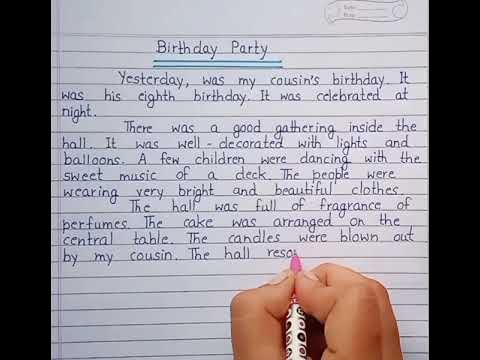 Birthday Party
Yesterday, was my cousin's birthday. It
was his eighth birthday. It was celebrated at
night.
There was a good gathering inside the
hall. It was well-decorated with lights and
balloons. A few children were dancing with the
sweet music of a deck. The people were
wearing very bright and beautiful clothes.
The hall was full of fragrance of
perfumes. The cake was arranged on the
central table. The candles were blown out
by my cousin. The hall reso